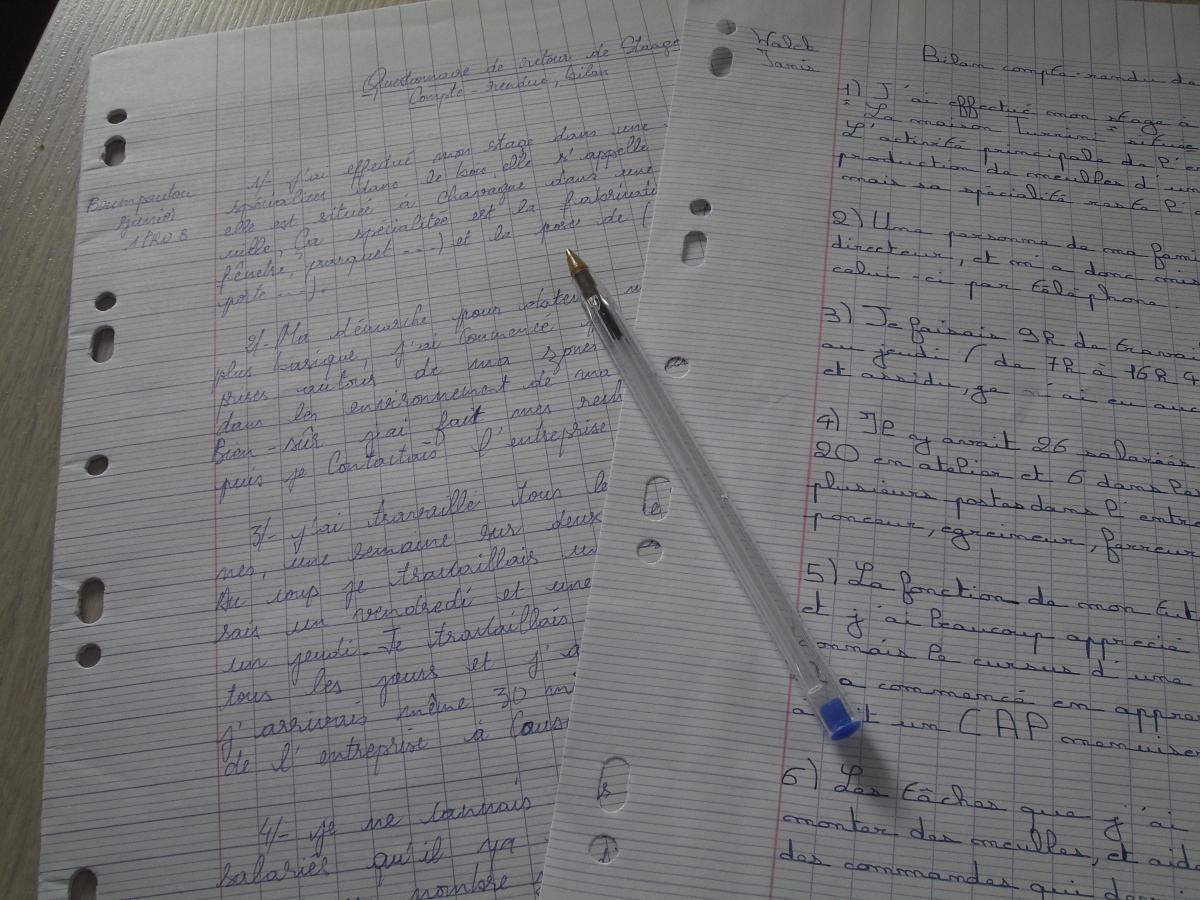 Questionnaire de retour de Staage
Compte-rendue, bilan
Junior
1PRO B
1/- j'ai effectué mon stage dans une
spécialisée dans le bois, elle s'appelle
elle est située à Chavagne dans une
ville, Sa spécialitée est la
fênêtre, parquet ----) et la pose de (
porte ----).
2/- Ma démarche pour
plus basique, j'ai Commencé
prises autour de ma
dans les environnement de ma
Bien-sûr j'ai fait mes
puis je Contactais l'entreprise
3/- j'ai travaillé tous le
nes, une semaine sur deux
Au coup je travaillais
sais un vendredi et une
un jeudi. Je travaillais
tous les jours et j'
j'arrivais même 30 mn
de l'entreprise à Caus
4/- je ne connais
salariés qu'il ya
nombre
Walck
Janis
Bilan compte-rendu de
1) J'ai effectué mon stage à
La maison située
L'activité principale de l'
production de meubles d'
mais sa spécialité reste l'
2) Une personne de ma fami
directeur, et m'a donc mis
celui-ci par téléphone.
3) Je faisais 9h de travai
au jeudi ( de 7h à 16h 4
et assidu, ça n'ai eu auc
4) Il y avait 26 salariés
20 en atelier et 6 dans le
plusieurs postes dans l'entre
ponceur, egreineur, ferreur
5) La fonction de mon tut
et j'ai beaucoup apprecié
connais le cursus d'une
a commencé en appre
un CAP menuiser
6) Les tâches que j'ai
monter des meubles, et aide
des commandes qui